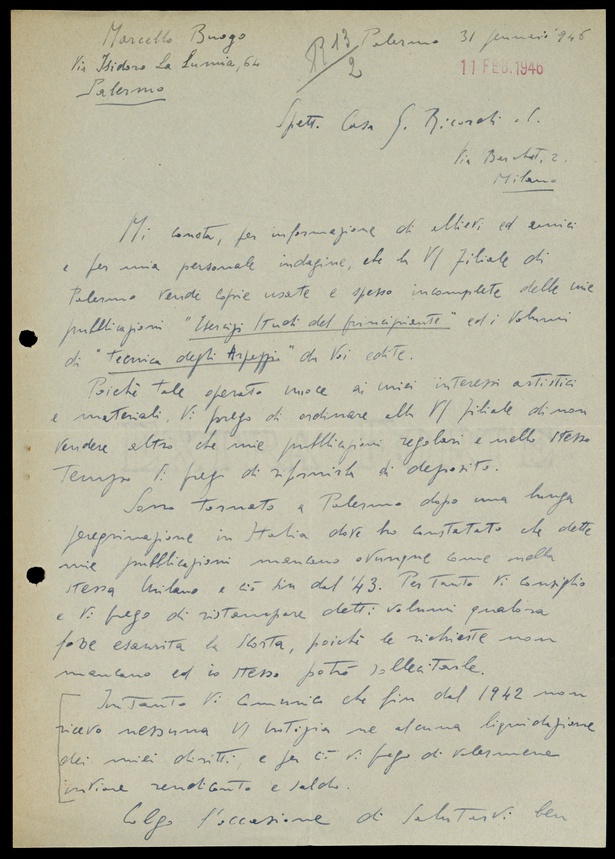 Marcello Buogo
Via Isidoro La Lumia, 64
Palermo
R 13
2
Palermo 31 gennaio 946
11 FEB. 1946
Spett. Casa G. Ricordi e C.
Via Berchet, 2.
Milano
Mi consta, per informazione di allievi ed amici
e per mia personale indagine, che la V/ Filiale di
Palermo vende copie usate e spesso incomplete delle mie
pubblicazioni "Esercizi Studi del principiante" ed i volumi
di "Tecnica degli Arpeggi" da Voi edite.
Poichè tale operato nuoce ai miei interessi artistici
e materiali, Vi prego di ordinare alla V/ Filiale di non
vendere altro che mie pubblicazioni regolari e nello stesso
tempo Vi prego di rifornirla di deposito.
Sono tornato a Palermo dopo una lunga
peregrinazione in Italia dove ho constatato che dette
mie pubblicazioni mancano ovunque come nella
stessa Milano e ciò fin dal '43. Pertanto Vi consiglio
e Vi prego di ristampare detti volumi qualora
fosse esaurita la scorta, poichè le richieste non
mancano ed io stesso potrò sollecitarle.
Intanto Vi comunico che fin dal 1942 non
ricevo nessuna V/ notizia nè alcuna liquidazione
dei miei diritti, e per ciò Vi prego di volermene
inviare rendiconto e saldo.
Colgo l'occasione di salutarvi ben